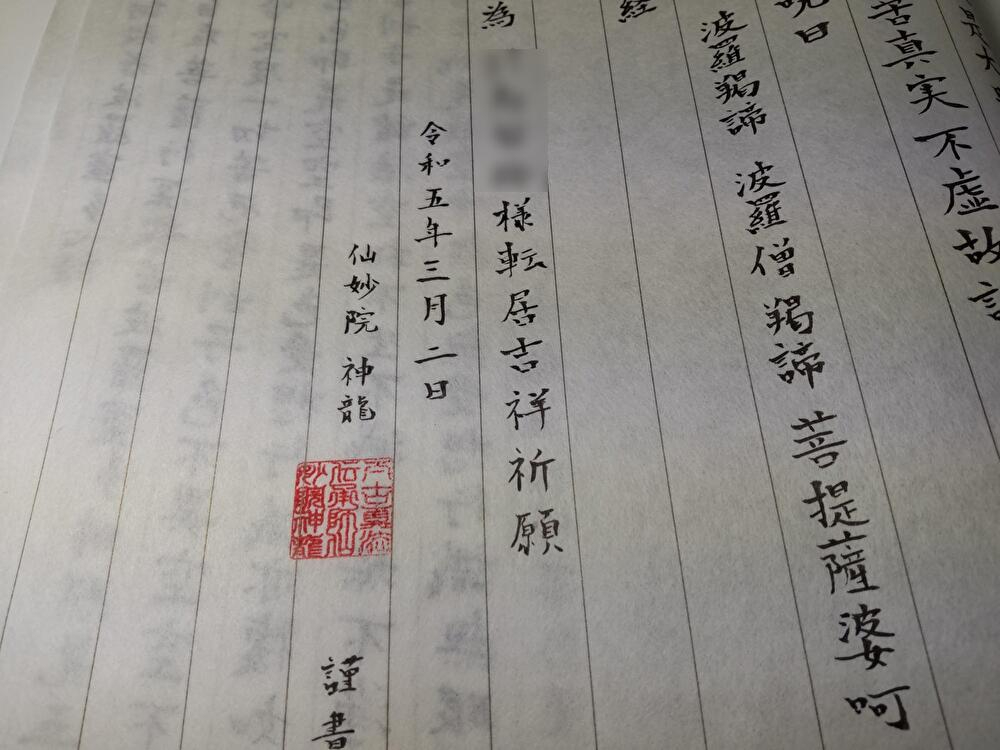 苦真実不虚故
呪曰
波羅羯諦 波羅僧羯諦 菩提薩婆呵
経
為 様転居吉祥祈願
令和五年三月二日
仙妙院 神龍 謹書